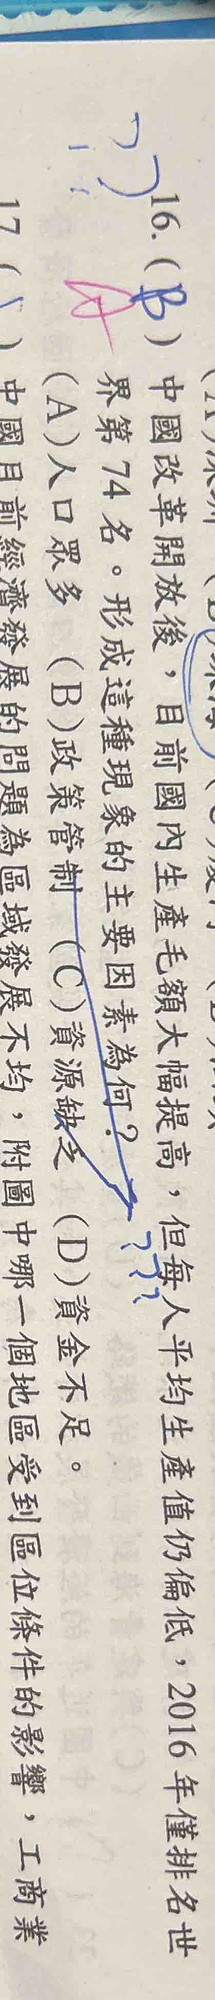 16. ( B ) 中國改革開放後，目前國內生產毛額大幅提高，但每人平均生產值仍偏低，2016年僅排名世
界第74名。形成這種現象的主要因素為何？
(A)人口眾多 (B)政策管制 (C)資源缺乏 (D)資金不足。
17. ( ) 中國目前經濟發展的問題為區域發展不均，附圖中哪一個地區受到區位條件的影響，工商業
A
???
??